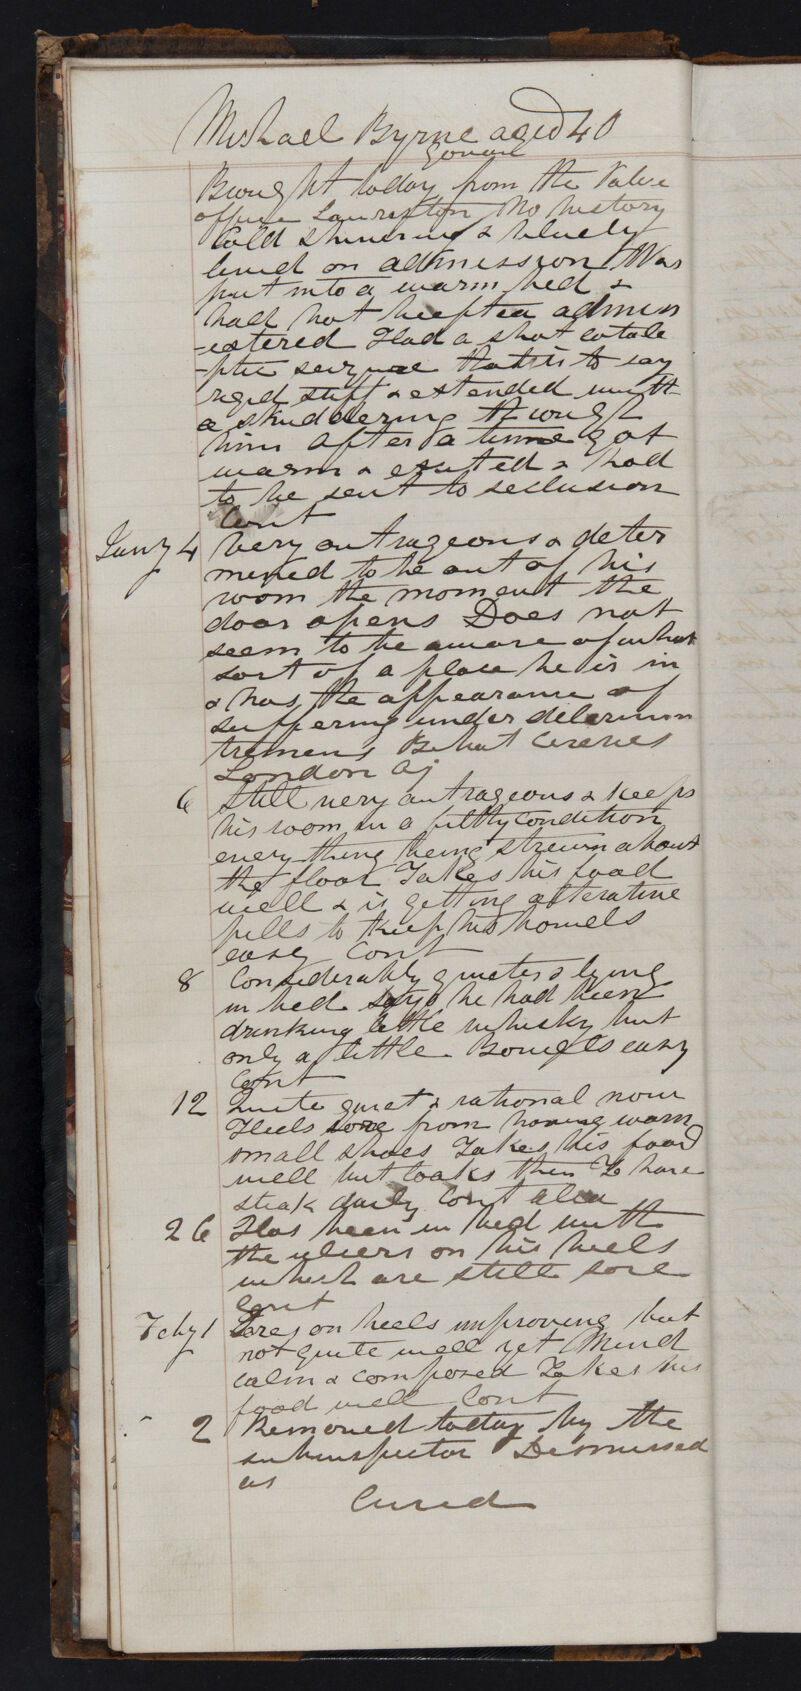 Michael Byrne aged 40
Govan
Brought today from the
office Lauriston No history
Cold shivering & bluely
livid on admission Was
put into a warm bed &
half hot beeftea admin
-istered Had a short catale
-ptic seizure that is to say
rigid stiff & extended with
a shuddering through
him After a time got
warm & excited & had
to be sent to seclusion
Cont
Jany 4 Very outrageous & deter
mined to be out of his
room the moment the
door opens Does not
seem to be aware of what
sort of a place he is in
& has the appearance of
suffering under delerium
tremens
London
6 Still very outrageous & keeps
his room in a filthy condition
every thing being strewn about
the floor Takes his food
well & is getting alterative
pills to keep his bowels
easy Cont
8 Considerably quieter & lying
in bed Says he had been
drinking little whisky but
only a little Bowels easy
Cont
12 Quite quiet & rational now
Heels sore from having worn
small shoes Takes his food
well but looks thin To have
steak daily Cont
26 Has been in bed with
the ulcers on his heels
which are still sore
Cont
Feby 1 Sores on heels improving but
not quite well yet Mind
calm & composed Takes his
food well Cont
2 Removed today by the
subinspector Dismissed
as
Cured